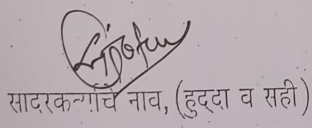 सादरकर्त्याचे नाव, (हुद्दा व सही)